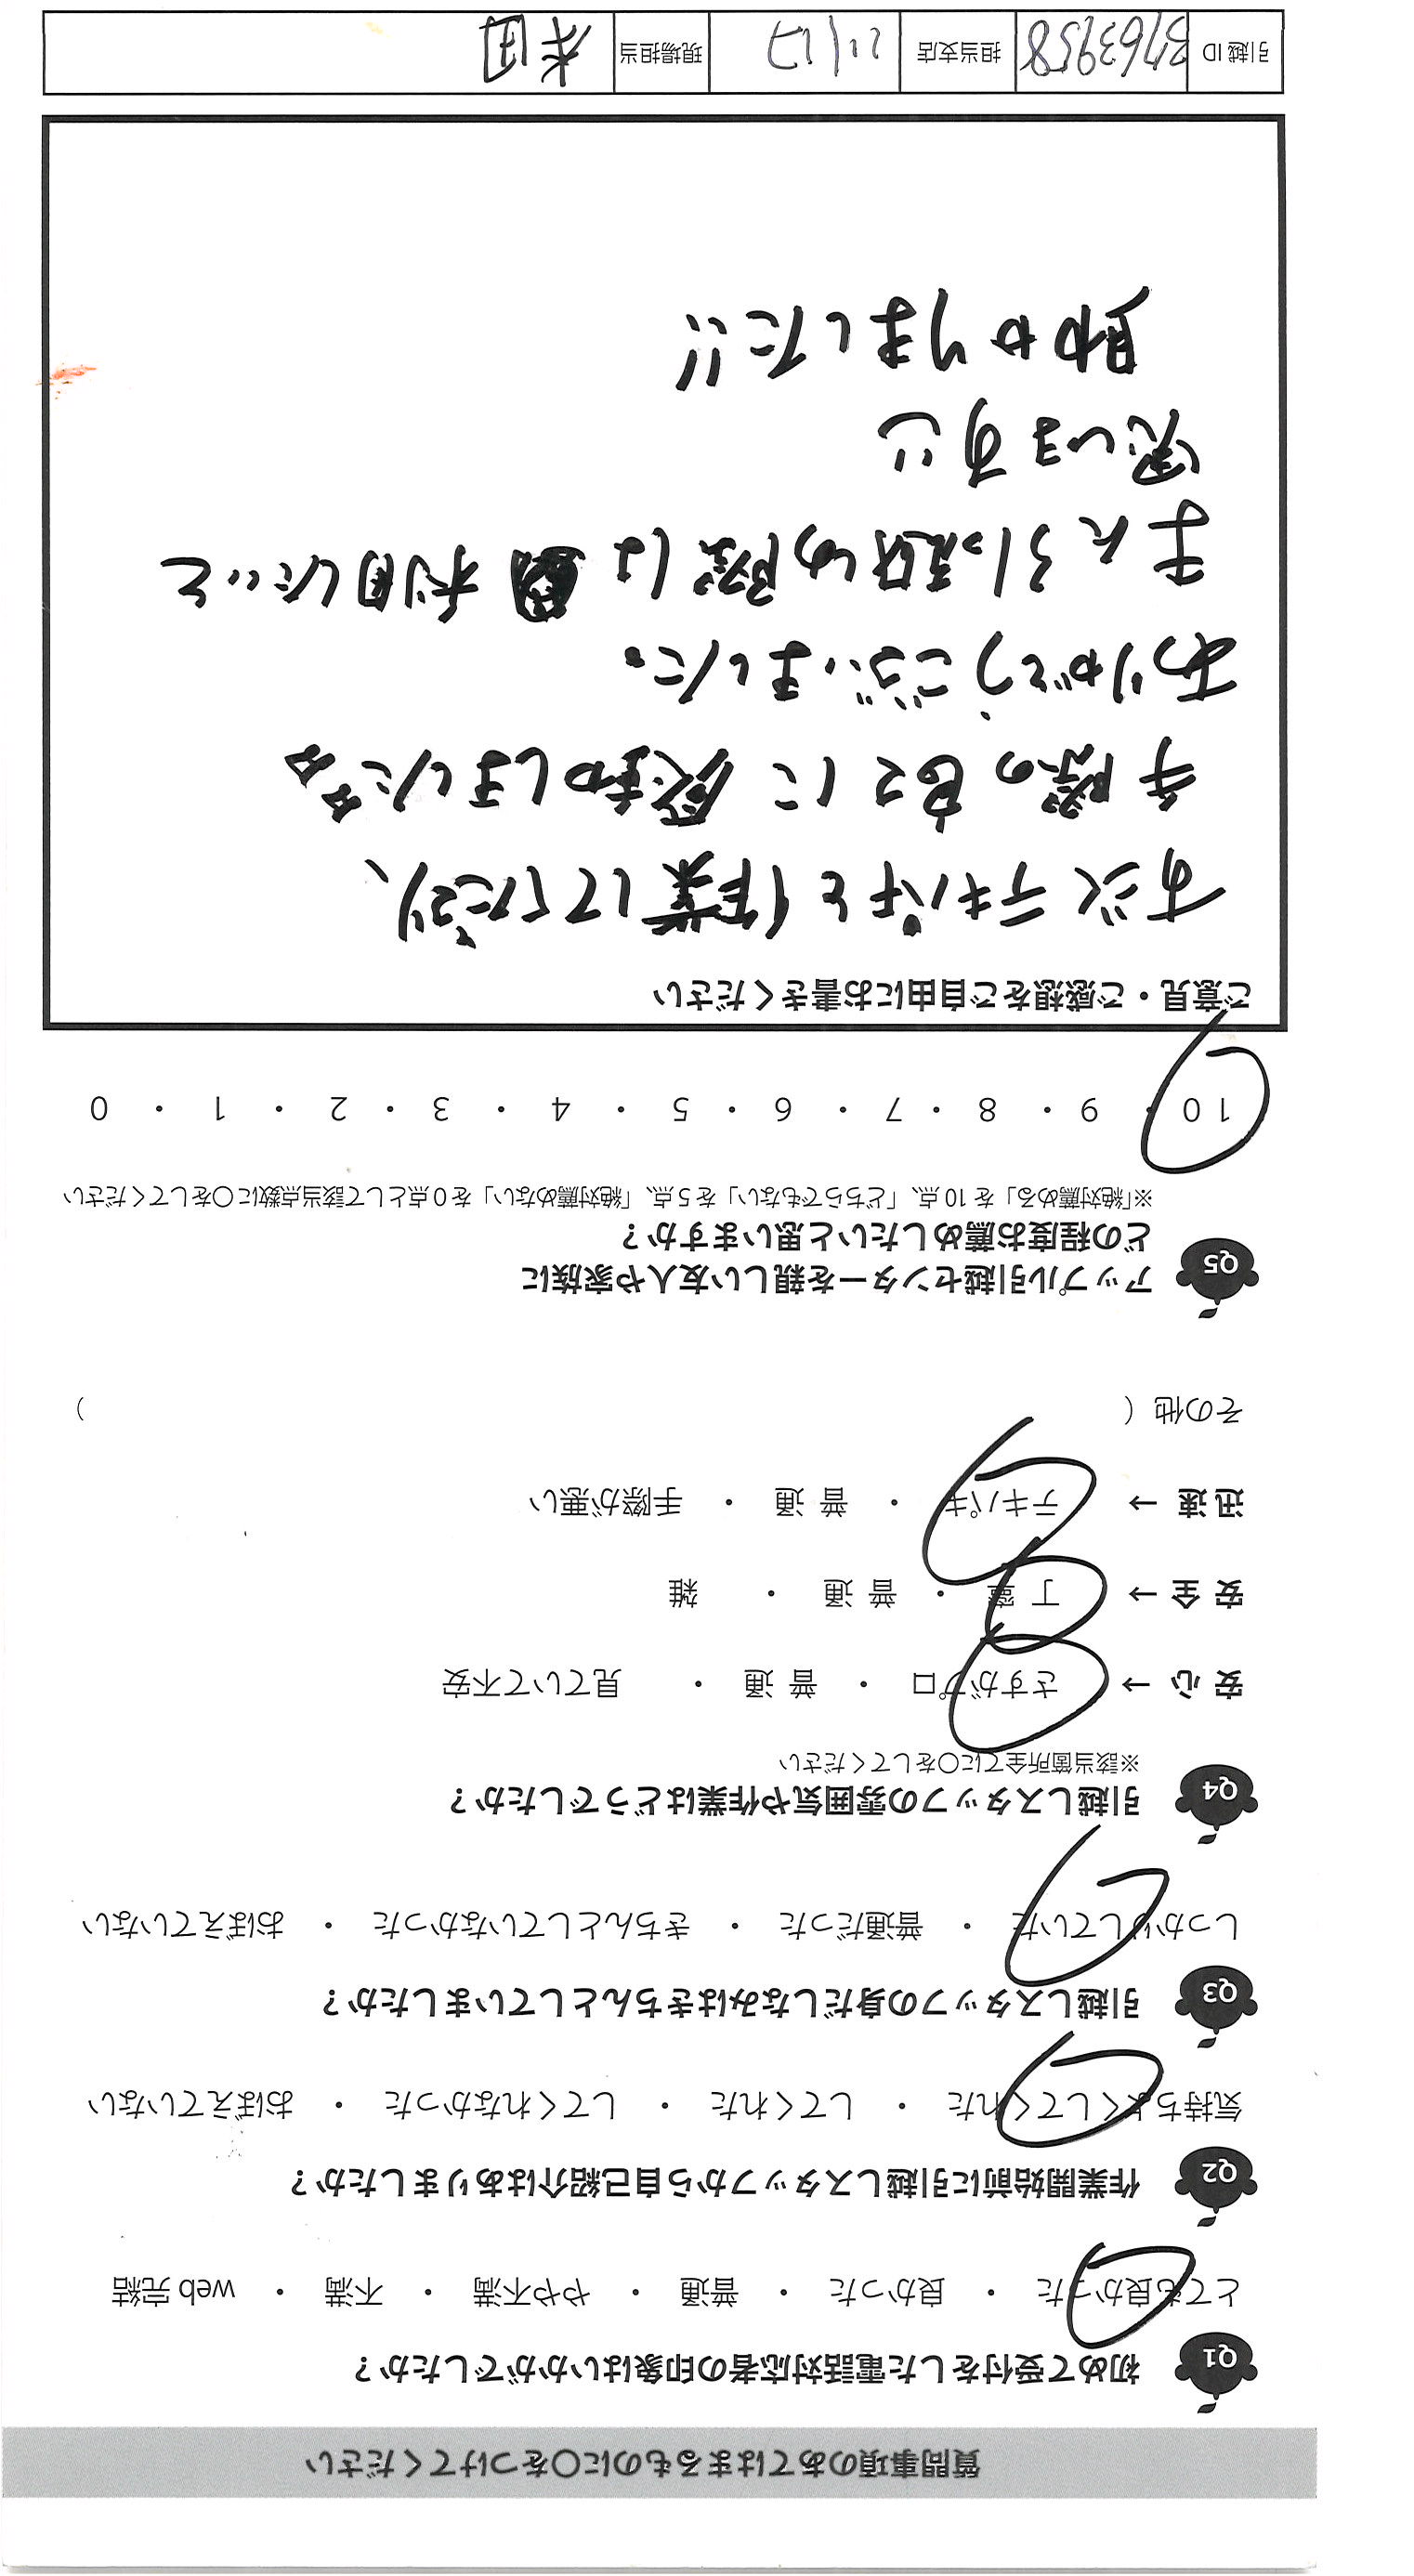 質問事項のあてはまるものに〇をつけてください
Q1 初めて受付をした電話対応者の印象はいかがでしたか？
とても良かった ・ 良かった ・ 普通 ・ やや不満 ・ 不満 ・ web 完結
Q2 作業開始前に引越しスタッフから自己紹介はありましたか？
気持ちよくしてくれた ・ してくれた ・ してくれなかった ・ おぼえていない
Q3 引越しスタッフの身だしなみはきちんとしていましたか？
しっかりしていた ・ 普通だった ・ きちんとしていなかった ・ おぼえていない
Q4 引越しスタッフの雰囲気や作業はどうでしたか？
※該当箇所全てに〇をしてください
安 心 → さすがプロ ・ 普 通 ・ 見ていて不安
安 全 → 丁 寧 ・ 普 通 ・ 雑
迅 速 → テキパキ ・ 普 通 ・ 手際が悪い
その他（ ）
Q5 アップル引越センターを親しい友人や家族に
どの程度お薦めしたいと思いますか？
※「絶対薦める」を 10 点、「どちらでもない」を 5 点、「絶対薦めない」を 0 点として該当点数に〇をしてください
10 ・ 9 ・ 8 ・ 7 ・ 6 ・ 5 ・ 4 ・ 3 ・ 2 ・ 1 ・ 0
ご意見・ご感想をご自由にお書きください
テキパキと作業してくださり、
手際の良さに感動しました
ありがとうございました。
また引っ越しの際は 利用したいと
思います
助かりました!!
引越 ID 3763958 担当支店 現場担当